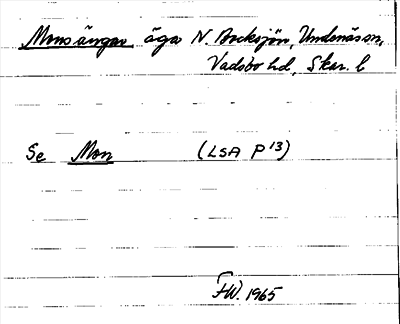 Monsängar äga N. Bocksjön, Undenäs sn,
Vadsbo hd, Skar. l
Se Mon (LSA P 13)
FW. 1965